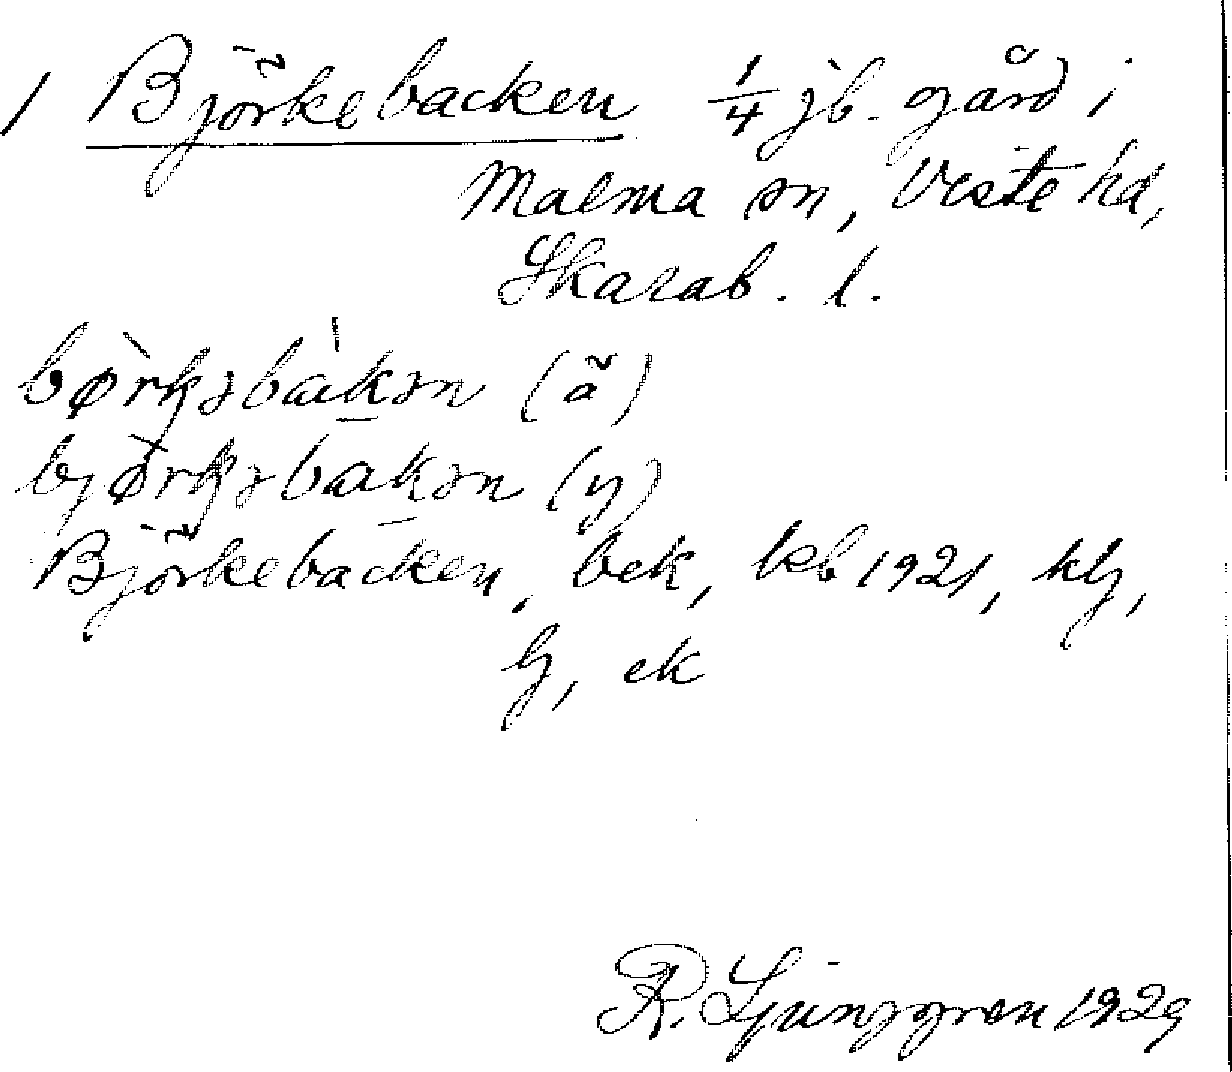 1 Björkebacken 1/4 jb. gård i
Malma sn, Viste hd,
Skarab. l.
bø̀rkəbàkən (ã)
bjø̀rkəbàkən (y)
Björkebacken, bek, kb 1921,
ek
R. Ljunggren 1929